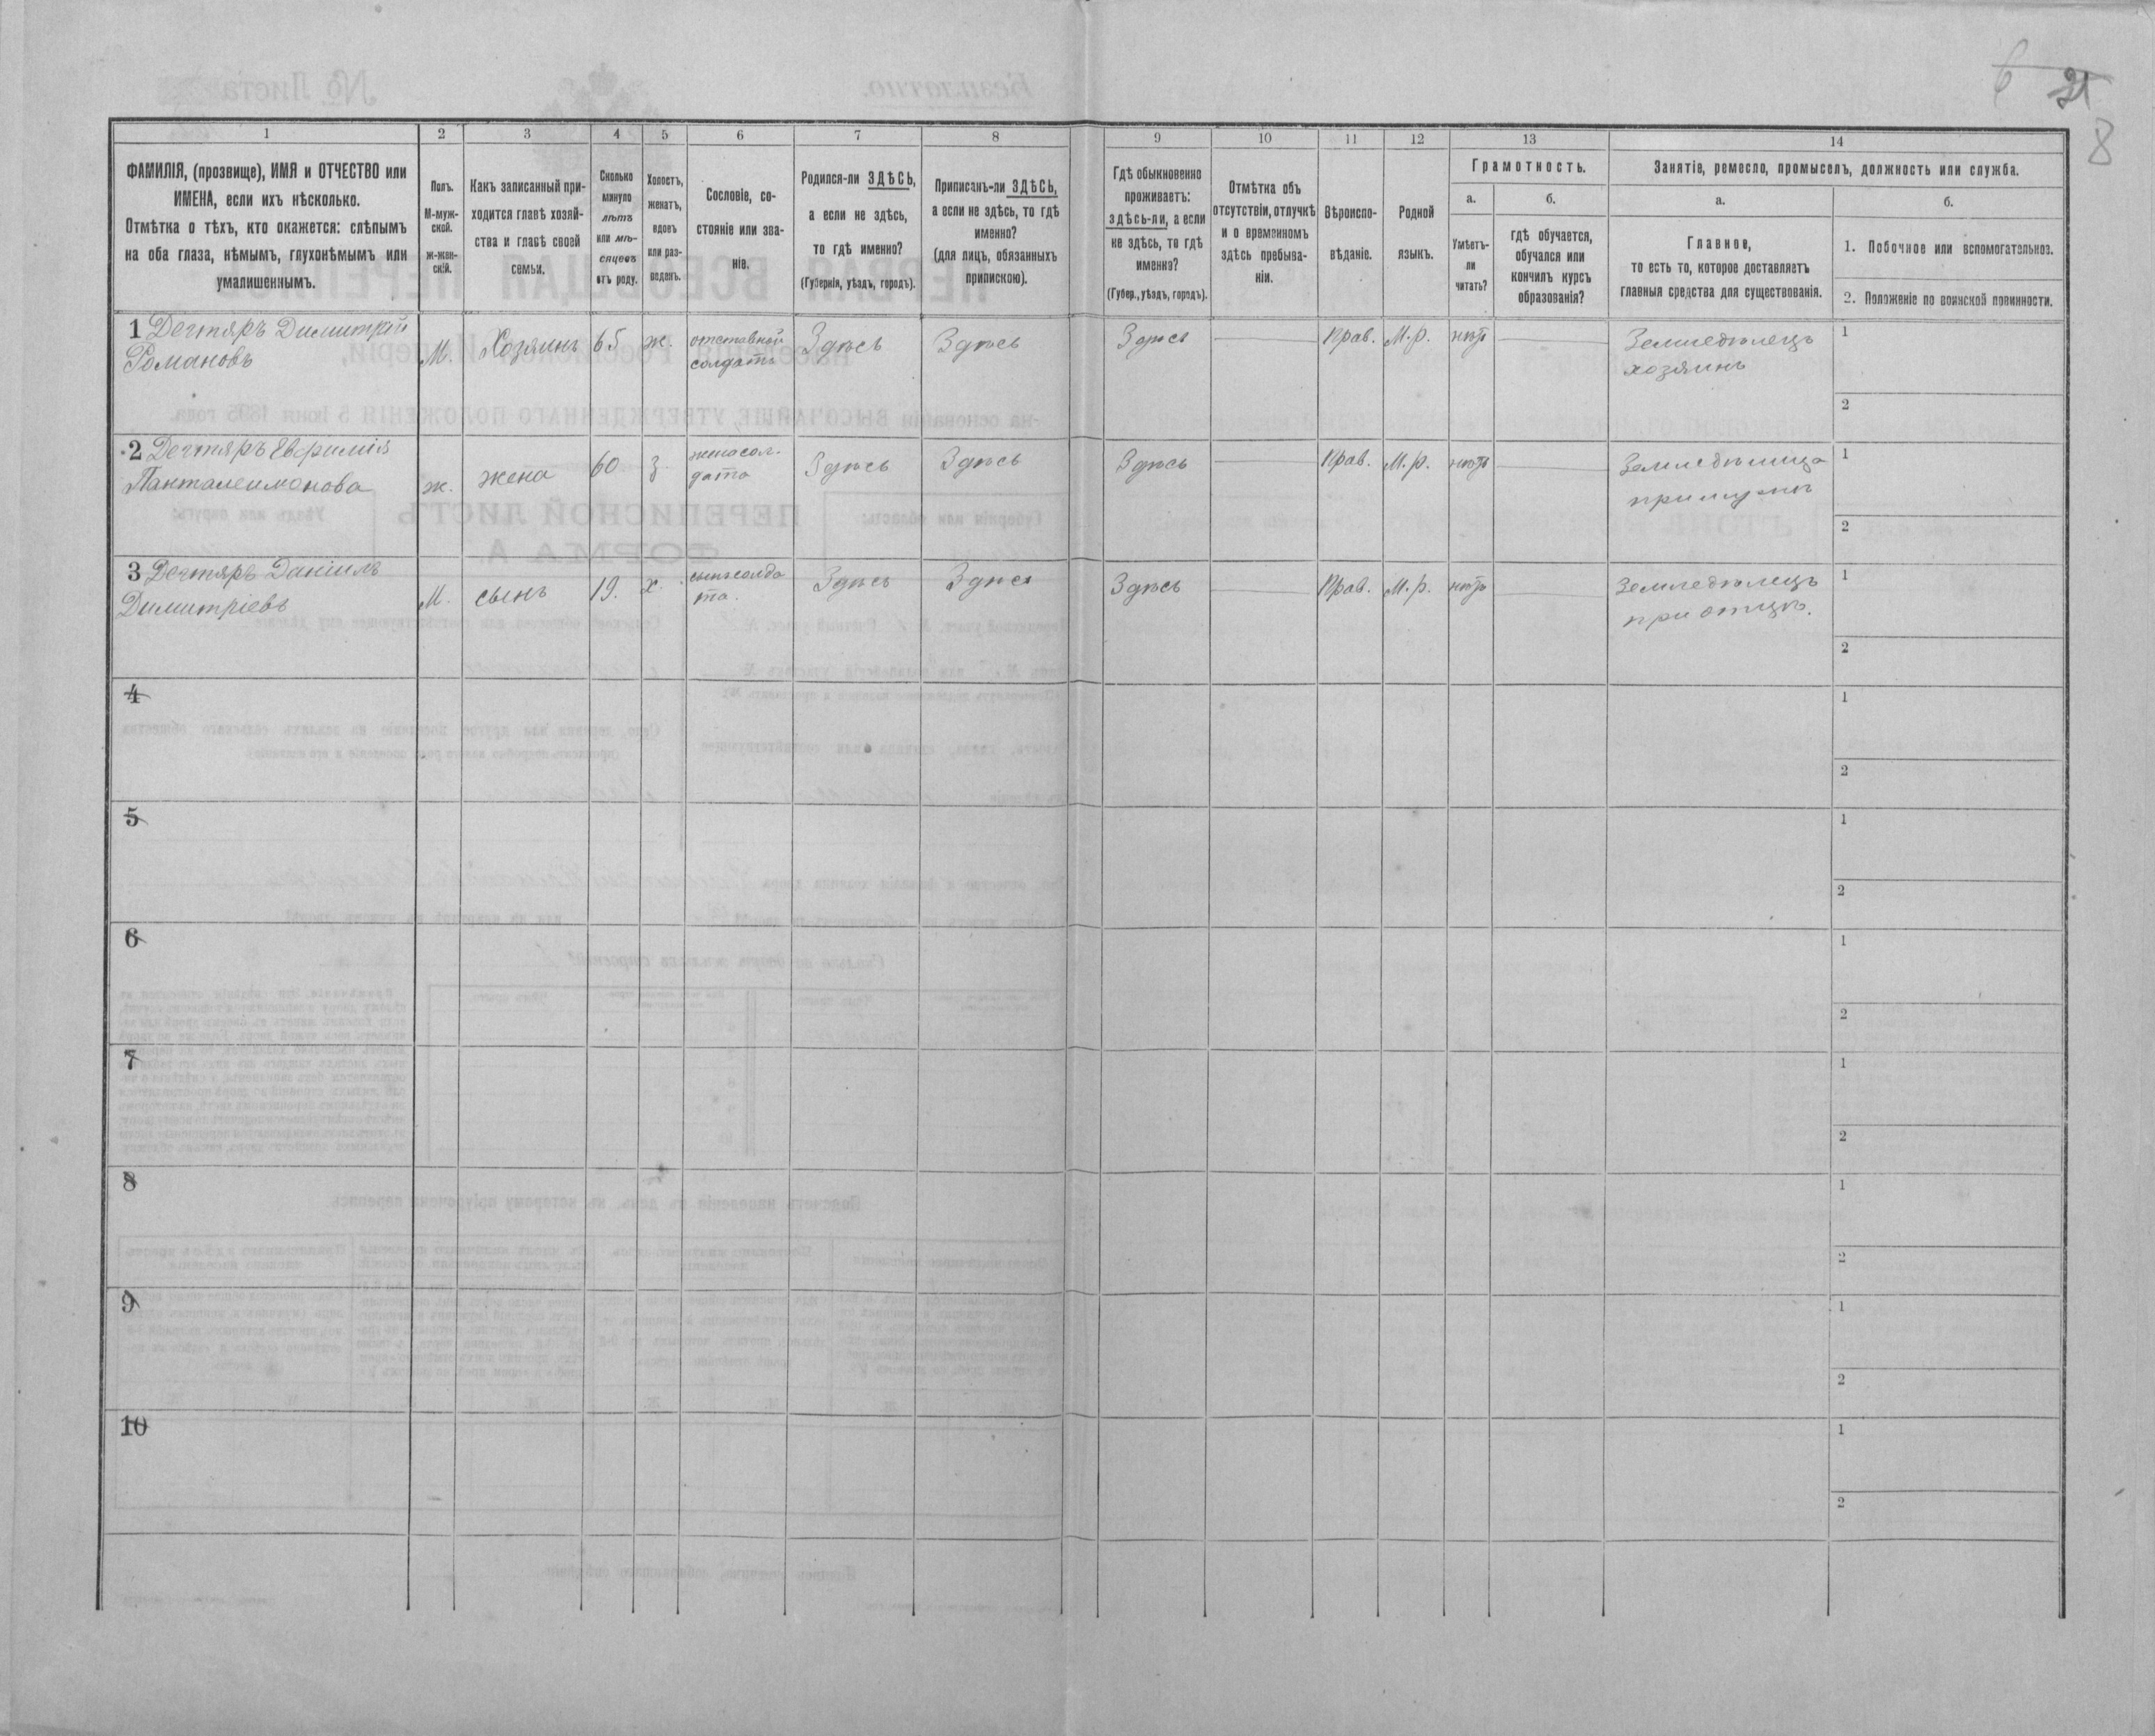 6 21
8
1 2 3 4 5 6 7 8 9 10 11 12 13 14
ФАМИЛІЯ, (прозвище), ИМЯ и ОТЧЕСТВО или
ИМЕНА, если ихъ нѣсколько.
Отмѣтка о тѣхъ, кто окажется: слѣпымъ
на оба глаза, нѣмымъ, глухонѣмымъ или
умалишеннымъ.
Полъ.
М-муж-
ской.
ж-жен-
скій.
Какъ записанный при-
ходится главѣ хозяй-
ства и главѣ своей
семьи.
Сколько
минуло
лѣтъ
или мѣ-
сяцевъ
отъ роду.
Холостъ,
женатъ,
вдовъ
или раз-
веденъ.
Сословіе, со-
стояніе или зва-
ніе.
Родился-ли ЗДѢСЬ,
а если не здѣсь,
то гдѣ именно?
(Губернія, уѣздъ, городъ).
Приписанъ-ли ЗДѢСЬ,
а если не здѣсь, то гдѣ
именно?
(для лицъ, обязанныхъ
припискою).
Гдѣ обыкновенно
проживаетъ:
здѣсь-ли, а если
не здѣсь, то гдѣ
именно?
(Губер., уѣздъ, городъ).
Отмѣтка объ
отсутствіи, отлучкѣ
и о временномъ
здѣсь пребыва-
ніи.
Вѣроиспо-
вѣданіе.
Родной
языкъ.
Грамотность.
а. б.
Умѣетъ-
ли
читать?
гдѣ обучается,
обучался или
кончилъ курсъ
образованія?
Занятіе, ремесло, промыселъ, должность или служба.
а. б.
Главное,
то есть то, которое доставляетъ
главныя средства для существованія.
1. Побочное или вспомогательное.
2. Положеніе по воинской повинности.
1 Дегтяръ Димитрій М. Хозяинъ 65 ж. отставной Здѣсь Здѣсь Здѣсь Прав. М.р. нѣтъ Земледѣлецъ 1
Романовъ солдатъ хозяинъ
2
2 Дегтяръ Евфимія ж. жена 60 з. жена сол- Здѣсь Здѣсь Здѣсь Прав. М.р. нѣтъ Земледѣлица 1
Панталеимонова дата при мужѣ
2
3 Дегтяръ Даніилъ М. сынъ 19. х. сынъ солда Здѣсь Здѣсь Здѣсь Прав. М.р. нѣтъ Земледѣлецъ 1
Димитріевъ та. при отцѣ.
2
4 1
2
5 1
2
6 1
2
7 1
2
8 1
2
9 1
2
10 1
2